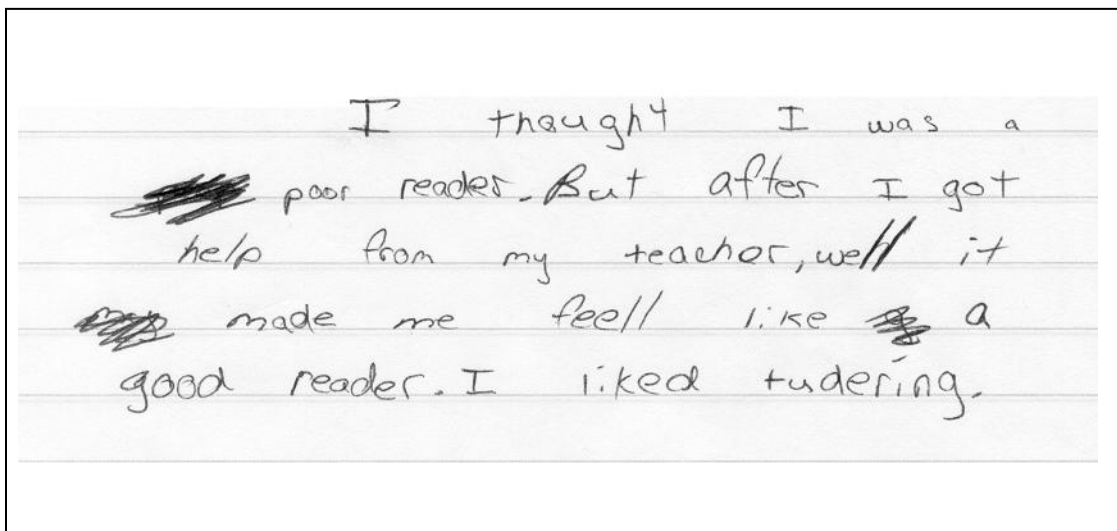 I thought I was a
poor reader. But after I got
help from my teachor, well it
made me feell like a
good reader. I liked tudering.